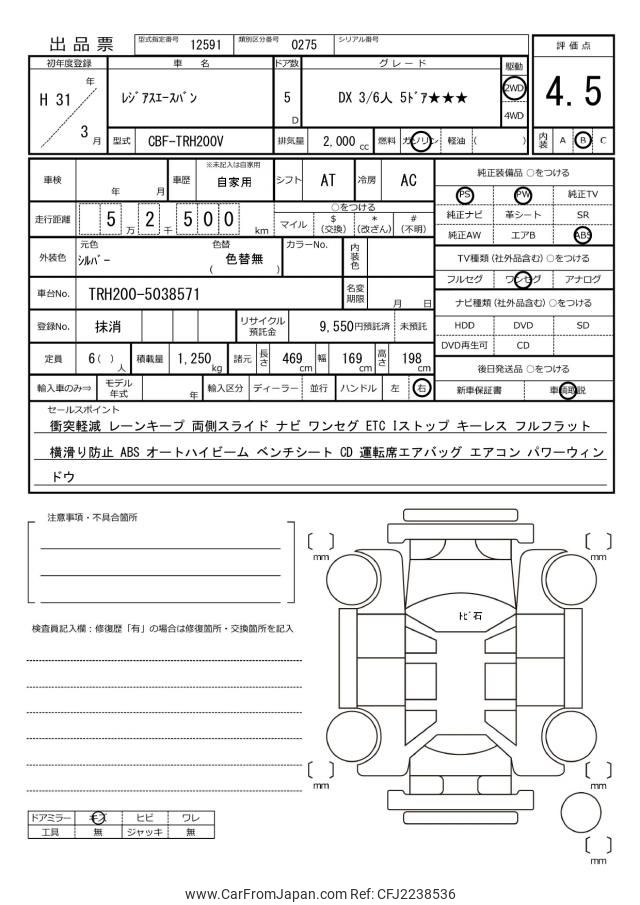 出 品 票
型式指定番号 12591 類別区分番号 0275 シリアル番号
評 価 点
4.5
初年度登録 車 名 ドア数 グ レ ー ド 駆動
H 31 年 3 月
ﾚｼﾞｱｽｴｰｽﾊﾞﾝ
5 D
DX 3/6人 5ﾄﾞｱ★★★
2WD
4WD
型式 CBF-TRH200V 排気量 2,000 cc 燃料 ガソリン 軽油 ( )
内装 A B C
車検 年 月 車歴 ※未記入は自家用 自家用 シフト AT 冷房 AC
走行距離 5 万 2 千 5 0 0 km
○をつける
マイル $ (交換) * (改ざん) # (不明)
外装色 元色 ｼﾙﾊﾞｰ 色替 ( 色替無 ) カラーNo. 内装色
車台No. TRH200-5038571 名変期限 月 日
登録No. 抹消 リサイクル預託金 9,550円預託済 未預託
定員 6 ( ) 人 積載量 1,250 kg 諸元 長さ 469 cm 幅 169 cm 高さ 198 cm
輸入車のみ⇒ モデル年式 年 輸入区分 ディーラー 並行 ハンドル 左 右
純正装備品 ○をつける
PS PW 純正TV
純正ナビ 革シート SR
純正AW エアB ABS
TV種類 (社外品含む) ○をつける
フルセグ ワンセグ アナログ
ナビ種類 (社外品含む) ○をつける
HDD DVD SD
DVD再生可 CD
後日発送品 ○をつける
新車保証書 車輌取説
セールスポイント
衝突軽減 レーンキープ 両側スライド ナビ ワンセグ ETC Iストップ キーレス フルフラット
横滑り防止 ABS オートハイビーム ベンチシート CD 運転席エアバッグ エアコン パワーウィン
ドウ
注意事項・不具合箇所
検査員記入欄：修復歴「有」の場合は修復箇所・交換箇所を記入
ドアミラー キズ ヒビ ワレ
工具 無 ジャッキ 無
mm
mm
ﾄﾋﾞ石
mm
mm
mm
www.CarFromJapan.com Ref: CFJ2238536